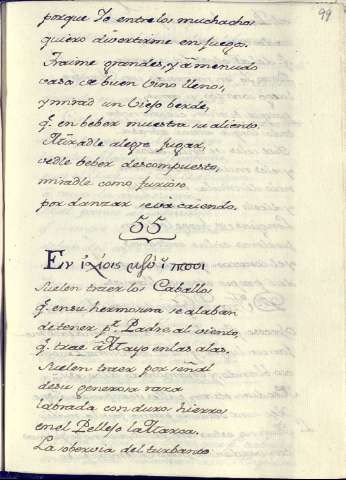 99
porque Yo entre los muchachos
quiero divertirme en fuego.
Traime grandes, y à menudo
casa de buen Vino lleno,
y mirad un Viejo berde,
q.̃ en beber muestra su aliento.
Miradle alegre jugar,
vedle beber descompuesto,
miradle como furioso
por danzar se và caiendo.
55
Εν ἰχίοις
Suelen traer los Caballos,
q.̃ en su hermosura se alaban
de tener p.r Padre al viento,
q.̃ trae à Mayo en las alas.
Suelen traer por señal
de su generosa raza
labrada con duro hierro
en el Pellejo la Marca.
La sobervia del turbante